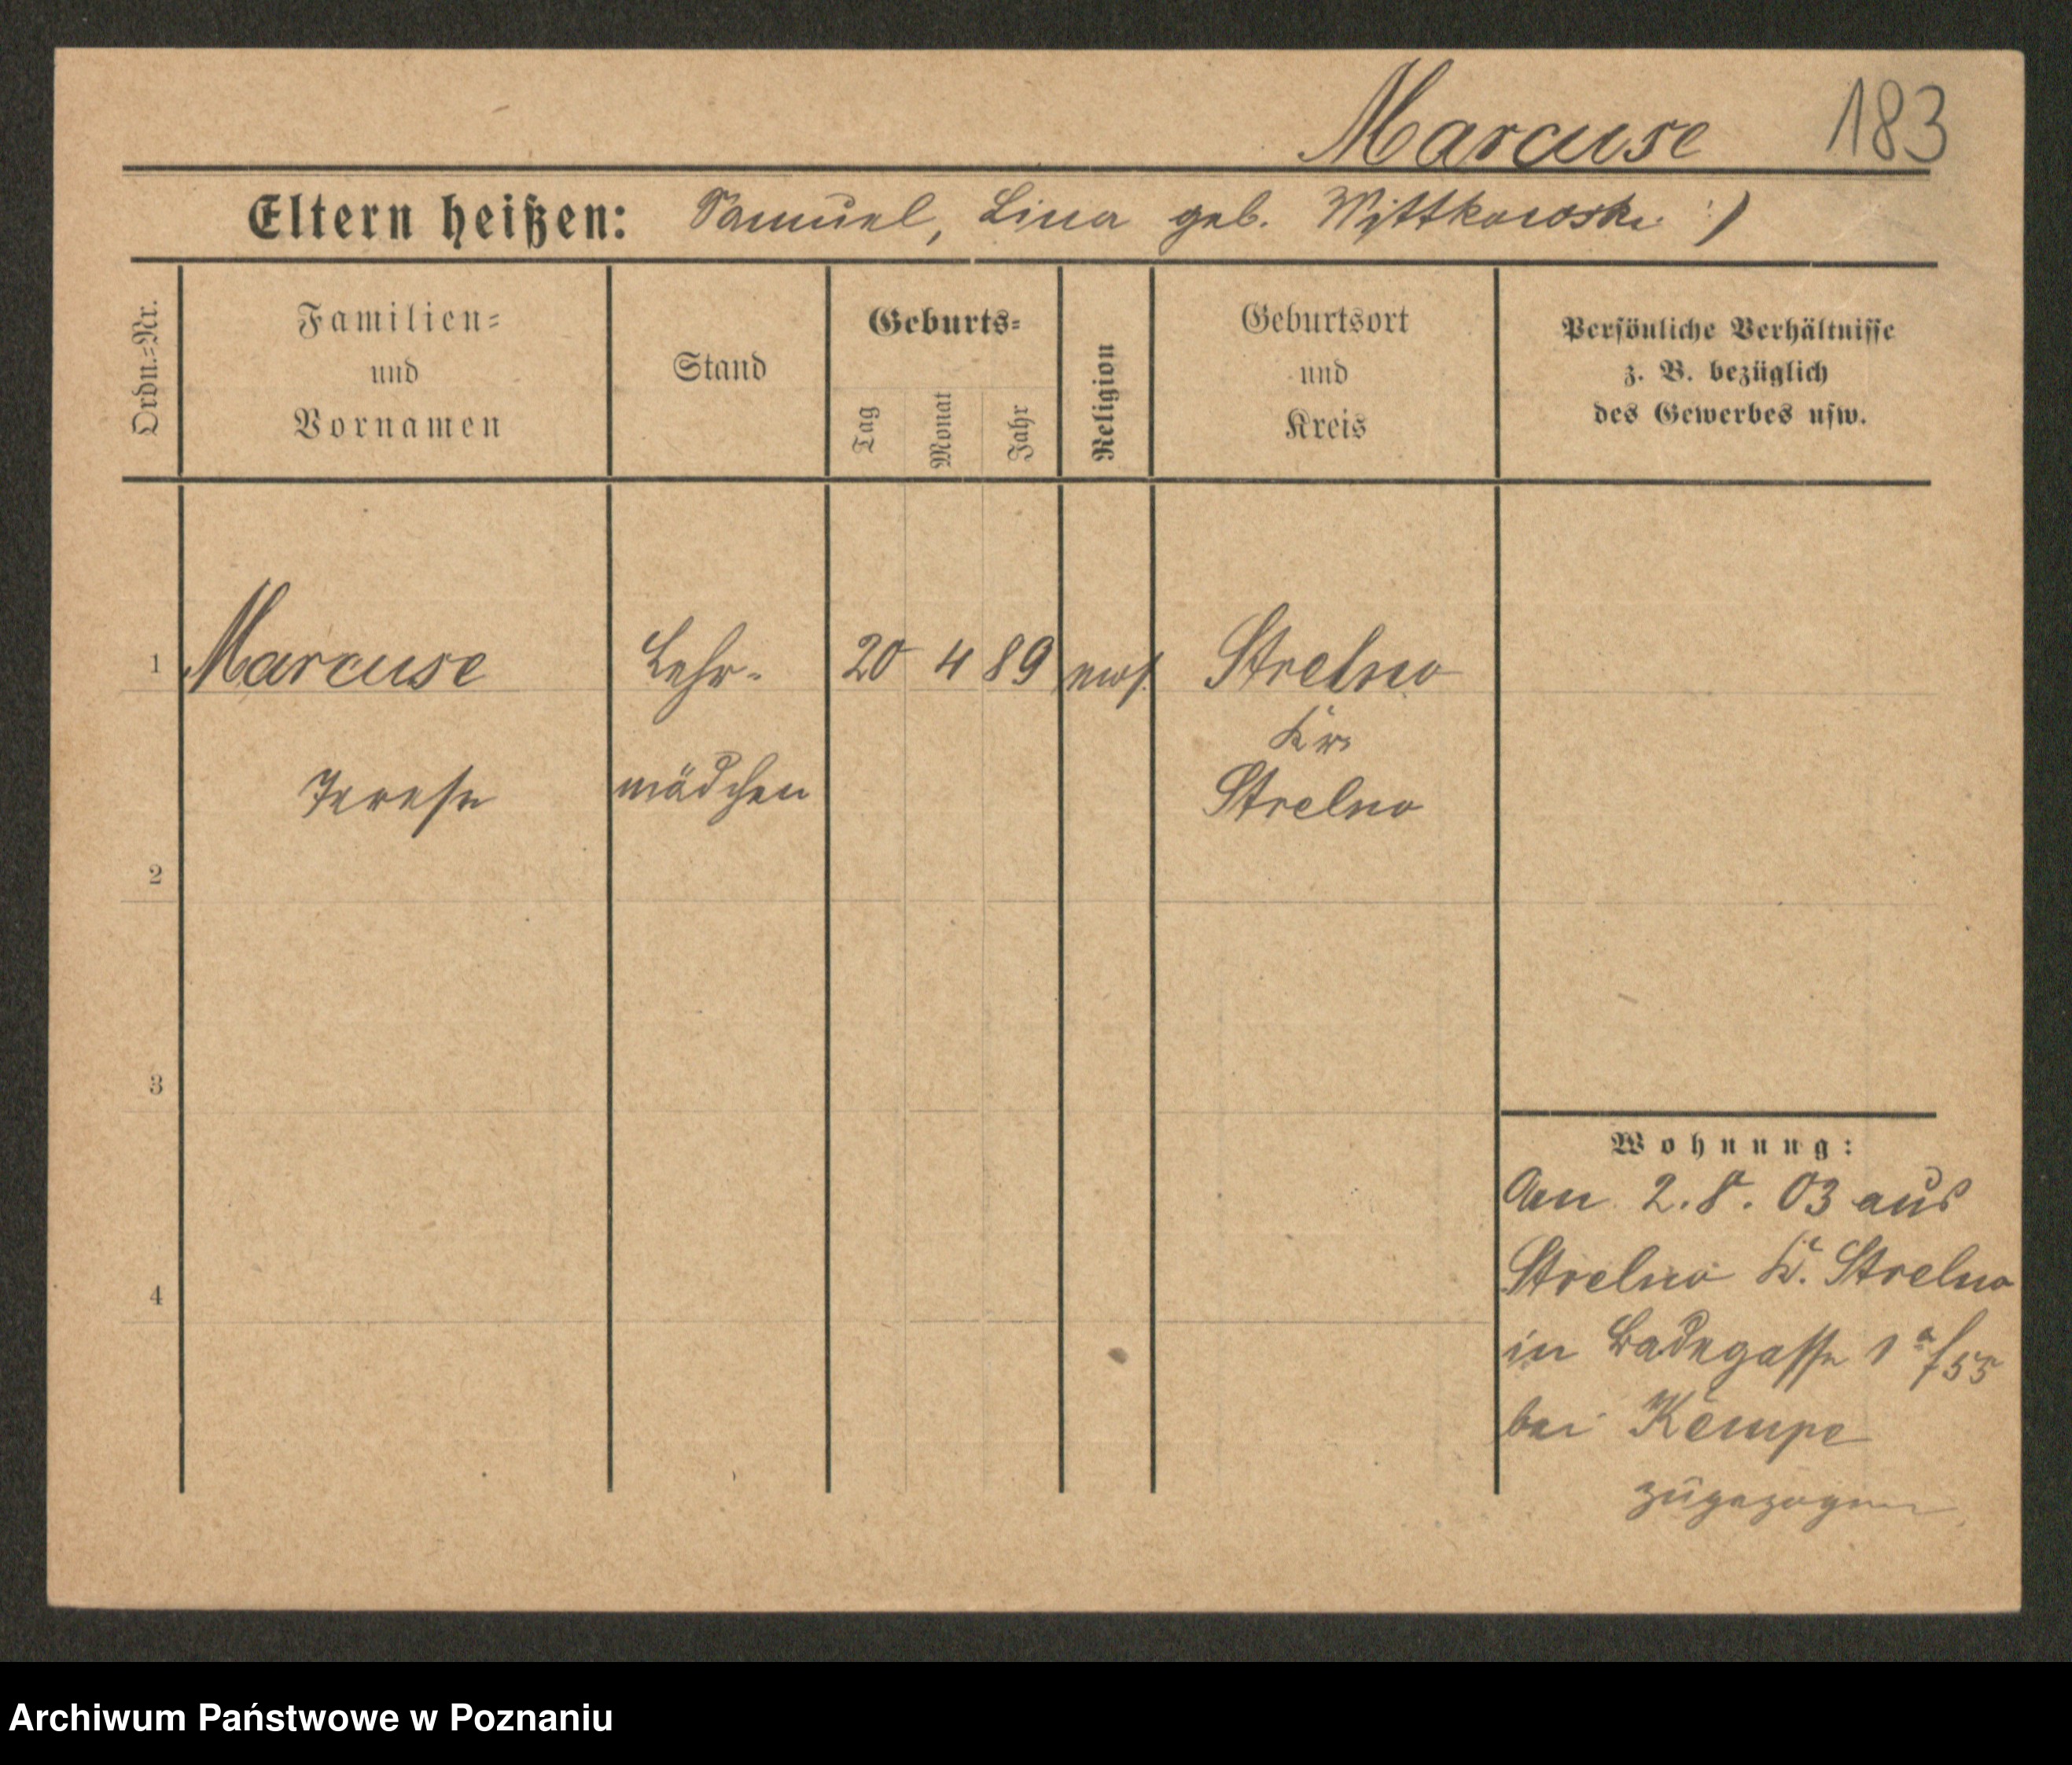 Marcuse 183
Eltern heißen: Samuel, Lina geb. Wittkowski :)
Ordn.=Nr.
Familien=
und
Vornamen
Stand
Geburts=
Tag
Monat
Jahr
Religion
Geburtsort
und
Kreis
Persönliche Verhältnisse
z. B. bezüglich
des Gewerbes usw.
1 Marcuse Lehr- 20 4 89 Strelno
Kr.
Terese mädchen Strelno
2
3
4
Wohnung:
Am 2.8.03 aus
Strelno K. Strelno
in Badegasse 1a/55
bei Kempe
zugezogen
Archiwum Państwowe w Poznaniu